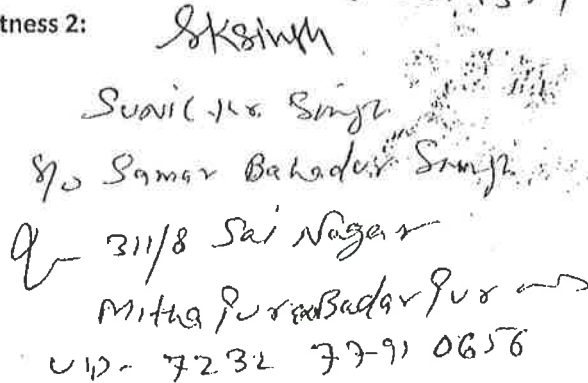 tness 2:
SKSingh
Sunil Kr. Singh
S/o Samar Bahadur Singh
311/8 Sai Nagar
Mitha Pur Badarpur
UID- 7232 7791 0656